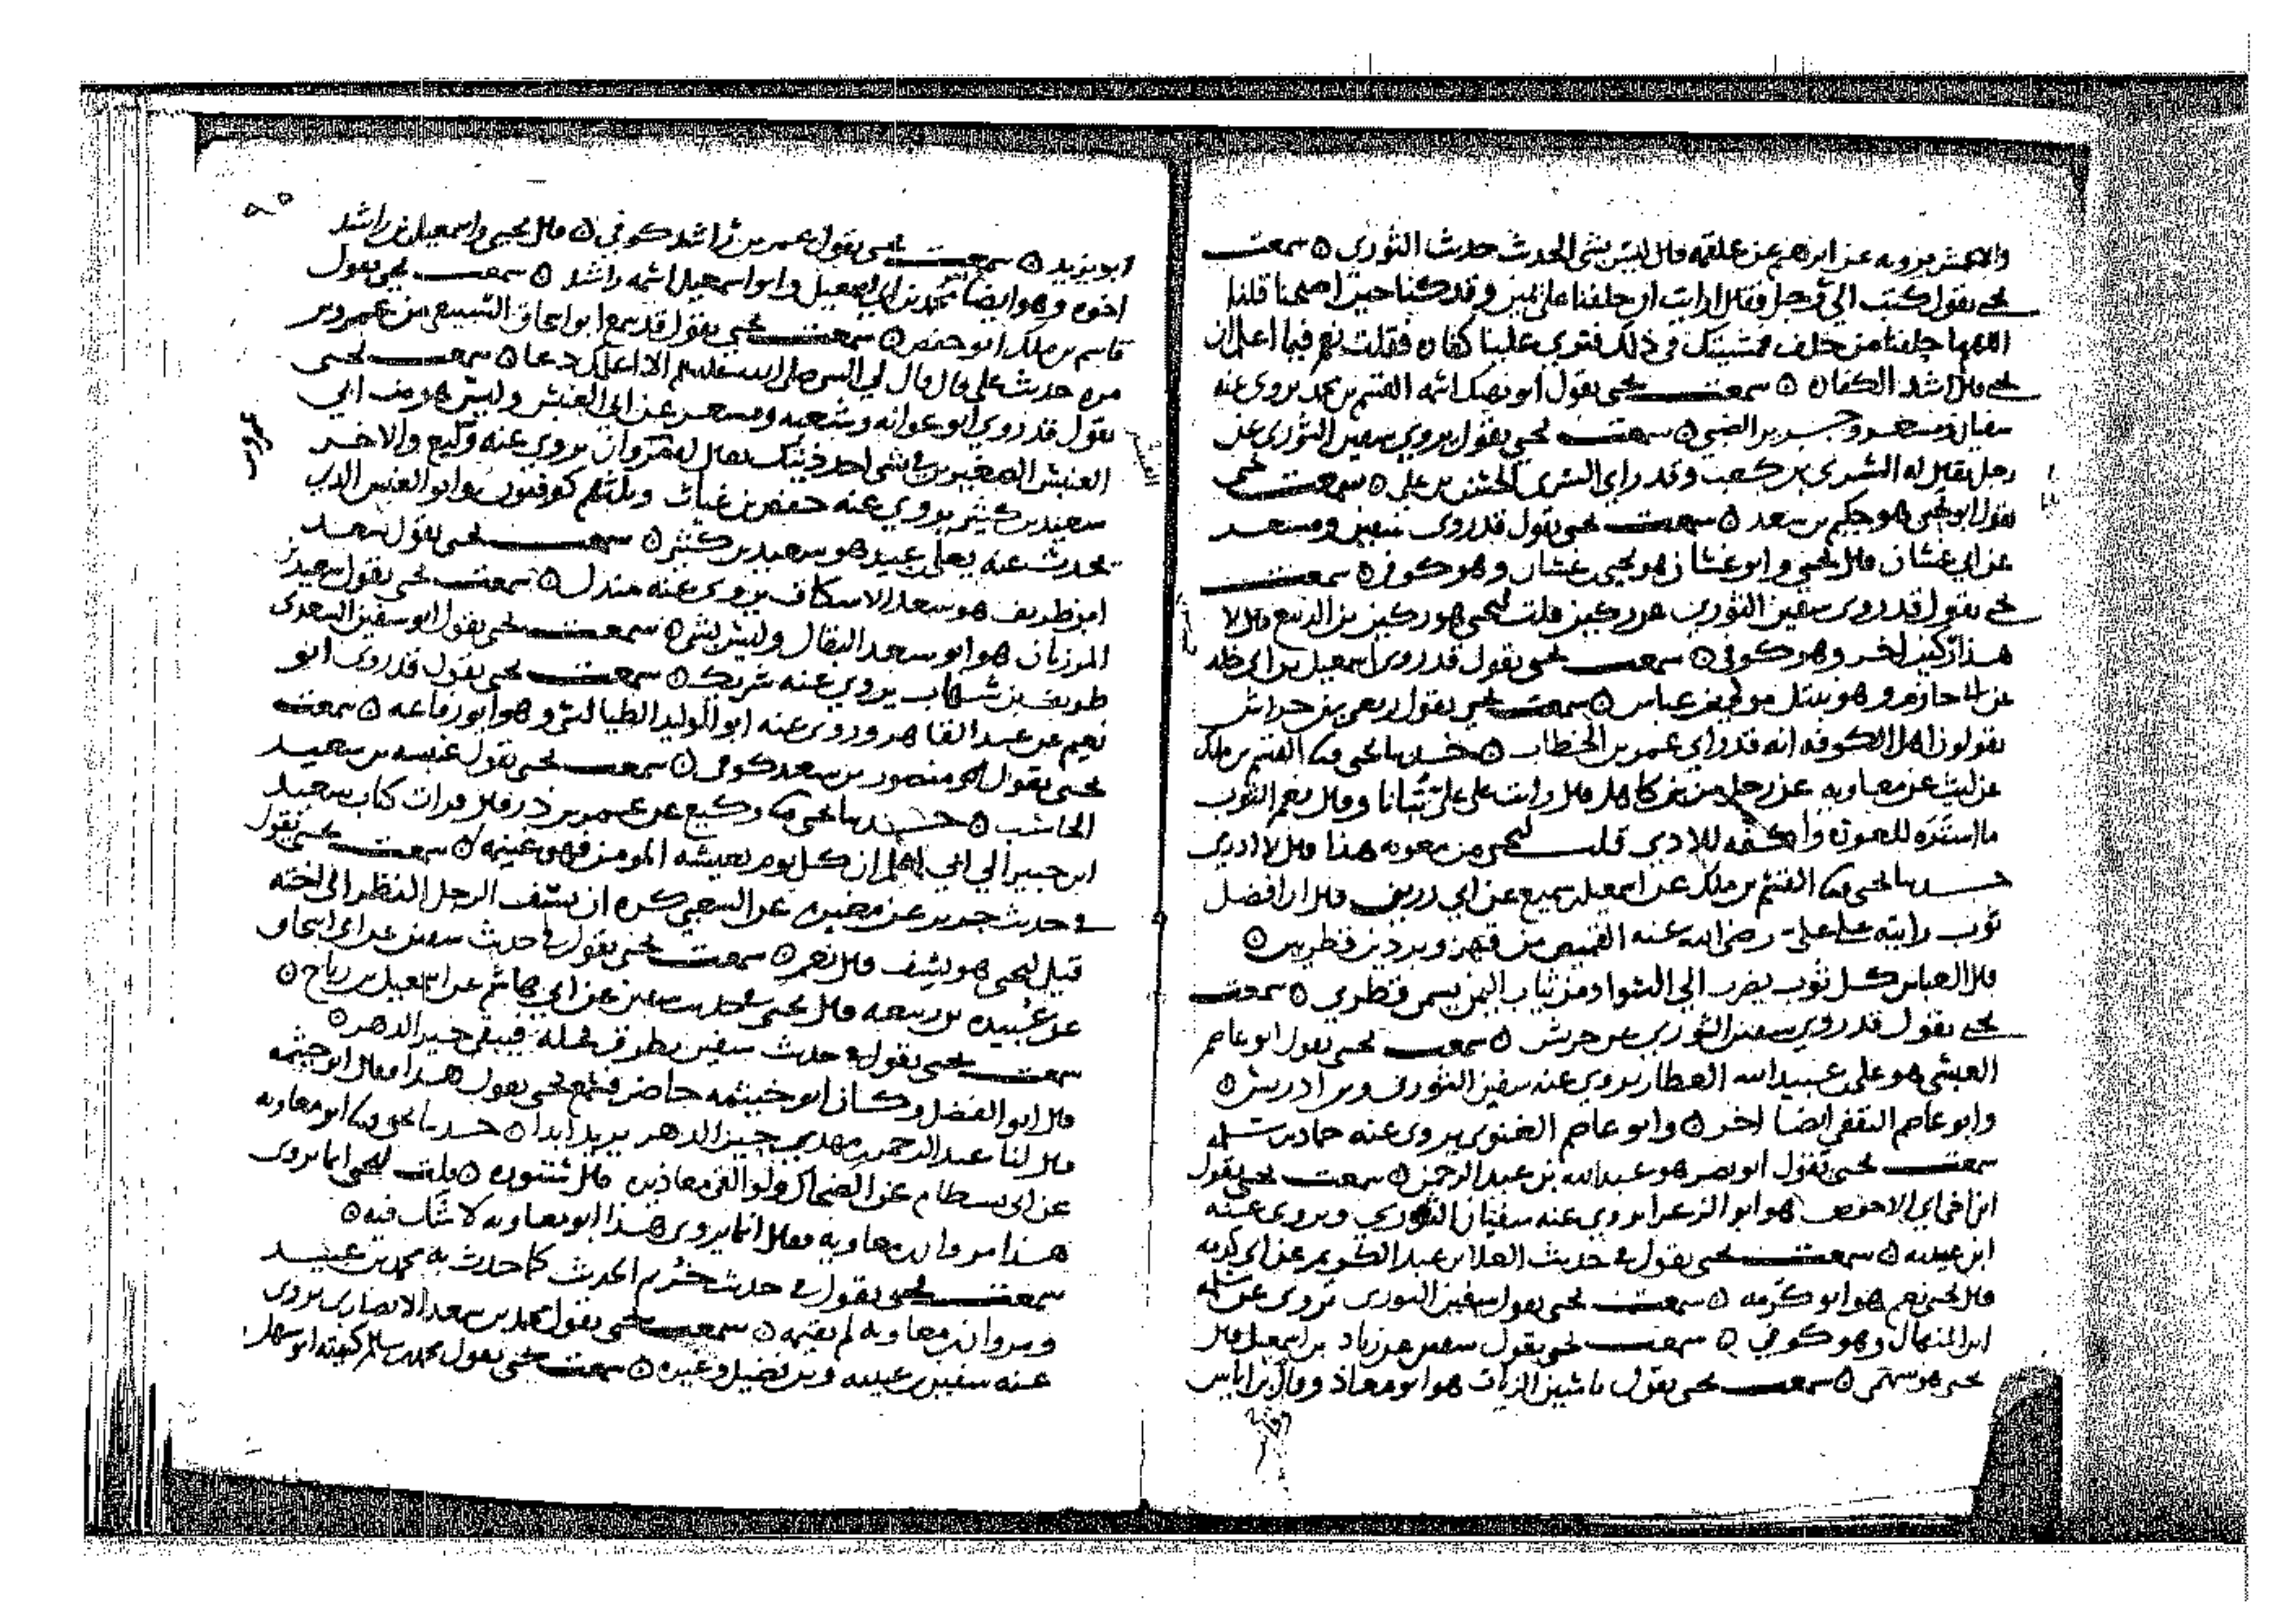 والاعمش يرويه عن ابرهيم عن علقمه قال ليس بشي الحديث حديث الثوري ه سمعت
يحيى يقول كتب الي رجل فقال ارايت ان حلفنا على يمين وقد كنا حين اصبحنا قلنا
اللهم ما حلفنا من حلف فمشيتك في ذلك فترى علينا كفاره فقلت نعم فيما اعلم ان
يحيى قال اشد الكفاره ه سمعت يحيى يقول ابو نهيك اسمه القسم بن محمد يروي عنه
سفيان ومسعر وجرير الضبي ه سمعت يحيى يقول يروي سفين الثوري عن
رجل يقال له السري بن كعب وقد راى السري الحسن بن علي ه سمعت يحيى
يقول ابو يحيى هو حكيم بن سعد ه سمعت يحيى يقول قد روى سفين ومسعر
عن ابي غسان قال يحيى وابو غسان هو يحيى بن غسان وهو كوفي ه سمعت
يحيى يقول قد روى سفين الثوري عن ركين قلت ليحيى هو ركين بن الربيع قال لا
هذا ركين اخر وهو كوفي ه سمعت يحيى يقول قد روى اسمعيل بن ابي خلد
عن ابي حازم وهو نبتل مولى ابن عباس ه سمعت يحيى يقول ربعي بن حراش
يقولون اهل الكوفه انه قد راى عمر بن الخطاب ه حدثنا يحيى نا القسم بن ملك
عن ليث عن معاويه عن رجل من بني كاهل قال رايت على علي تبانا وقال نعم الثوب
ما استره للعوره واكفه للاذى قلت ليحيى من معويه هذا قال لا ادري
حدثنا يحيى نا القسم بن ملك عن اسمعيل بن سميع عن ابي رزين قال ان افضل
ثوب رايته على علي رضي الله عنه القميص من قهز وبردين قطريين ه
قال العباس كل ثوب يضرب الى السواد من ثياب اليمن يسمى قطري ه سمعت
يحيى يقول قد روى سفين الثوري عن حريش ه سمعت يحيى يقول ابو عاصم
العبشي هو علي بن عبيد الله العطار يروي عنه سفين الثوري وابن ادريس ه
وابو عاصم الثقفي ايضا اخر ه وابو عاصم الغنوي يروي عنه حماد بن سلمه
سمعت يحيى يقول ابو نصر هو عبد الله بن عبد الرحمن ه سمعت يحيى يقول
ابن اخي ابي الاحوص هو ابو الزعرا يروي عنه سفيان الثوري ويروي عنه
ابن عيينه ه سمعت يحيى يقول في حديث العلا بن عبد الكريم عن ابي كرمه
قال يحيى نعم هو ابو كرمه ه سمعت يحيى يقول سفين الثوري يروي عن سلمه
ابن المنهال وهو كوفي ه سمعت يحيى يقول سفين عن زياد بن اسمعيل قال
يحيى هو سهمي ه سمعت يحيى يقول ياسين الزيات هو ابو معاذ وقال ابن اياس
ابو يزيد ه سمعت يحيى يقول عمر بن راشد كوفي ه قال يحيى واسمعيل بن راشد
اخوه وهو ايضا محمد بن ابي اسمعيل وابو اسمعيل اسمه راشد ه سمعت يحيى يقول
قاسم بن ملك ابو جعفر ه سمعت يحيى يقول قد سمع ابو اسحاق السبيعي من عمرو بن
مره حديث علي قال قال لي النبي صلى الله عليه وسلم الا اعلمك دعا ه سمعت يحيى
يقول قد روى ابو عوانه وشعبه ومسعر عن ابي العنبس وليس هو من ابي
العنبس الصغيرين في شي احد ذينك يقال له عمرو بن مروان يروي عنه وكيع والاخر
سعيد بن كثير يروي عنه حفص بن غياث وثلثتهم كوفيون وابو العنبس الذي
يحدث عنه يعلى بن عبيد هو سعيد بن كثير ه سمعت يحيى يقول سعد
ابن طريف هو سعد الاسكاف يروي عنه مندل ه سمعت يحيى يقول سعيد بن
المرزبان هو ابو سعد البقال وليس بشي ه سمعت يحيى يقول ابو سفين السعدي
طريف بن شهاب يروي عنه شريك ه سمعت يحيى يقول قد روى ابو
نعيم عن عبد القاهر وروى عنه ابو الوليد الطيالسي وهو ابو رفاعه ه سمعت
يحيى يقول منصور بن سعد كوفي ه سمعت يحيى يقول عنبسه بن سعيد
الحاسب ه حدثنا يحيى نا وكيع عن عمر بن ذر قال قرات كتاب سعيد
ابن جبير الي ابي اعلم ان كل يوم يعيشه المومن فهو غنيمه ه سمعت يحيى يقول
في حديث جرير عن مغيره عن الشعبي كره ان يشف الرجل النظر الى اخته
قيل ليحيى هو يشف قال نعم ه سمعت يحيى يقول في حديث سفين عن ابي اسحاق
عن عبيده بن ربيعه قال يحيى في حديث سفين عن ابي هاشم عن اسمعيل بن رياح ه
سمعت يحيى يقول في حديث سفين يطرق فحله فيبقى حيز الدهر ه
قال ابو الفضل وكان ابو خيثمه حاضر فسمع يحيى يقول هذا فقال ابو خيثمه
قال لنا عبد الرحمن بن مهدي حيز الدهر يريد ابدا ه حدثنا يحيى نا ابو معاويه
عن ابي بسطام عن الضحاك ولو القى معاذيره قال ستوره ه قلت ليحيى انما يروي
هذا مروان بن معاويه فقال انما يروي هذا ابو معاويه لا شك فيه ه
سمعت يحيى يقول في حديث خريم الحديث كما حدث به محمد بن عبيد
ومروان بن معاويه لم يقمه ه سمعت يحيى يقول محمد بن سعد الانصاري يروي
عنه سفين بن عيينه وابن فضيل وغيره ه سمعت يحيى يقول محمد بن سالم كنيته ابو سهل